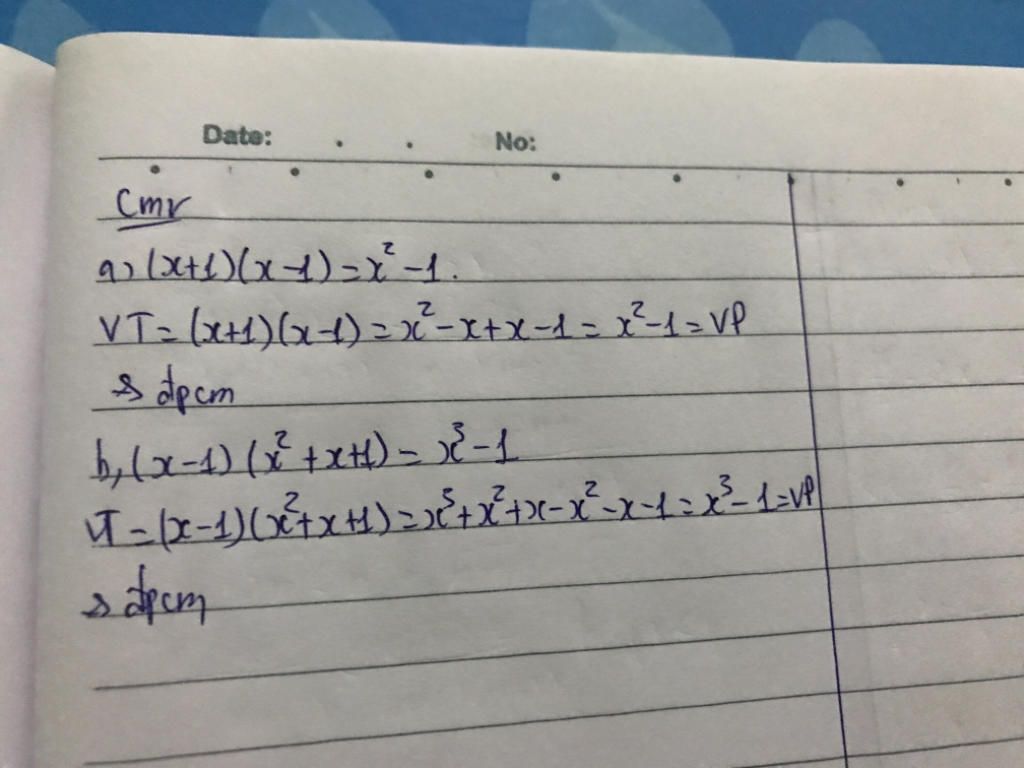 Date: . . No:
Cmr
a, (x+1)(x-1) = x² - 1.
VT = (x+1)(x-1) = x² - x + x - 1 = x² - 1 = VP
→ đpcm
b, (x-1)(x² + x + 1) = x³ - 1
VT = (x-1)(x² + x + 1) = x³ + x² + x - x² - x - 1 = x³ - 1 = VP
→ đpcm